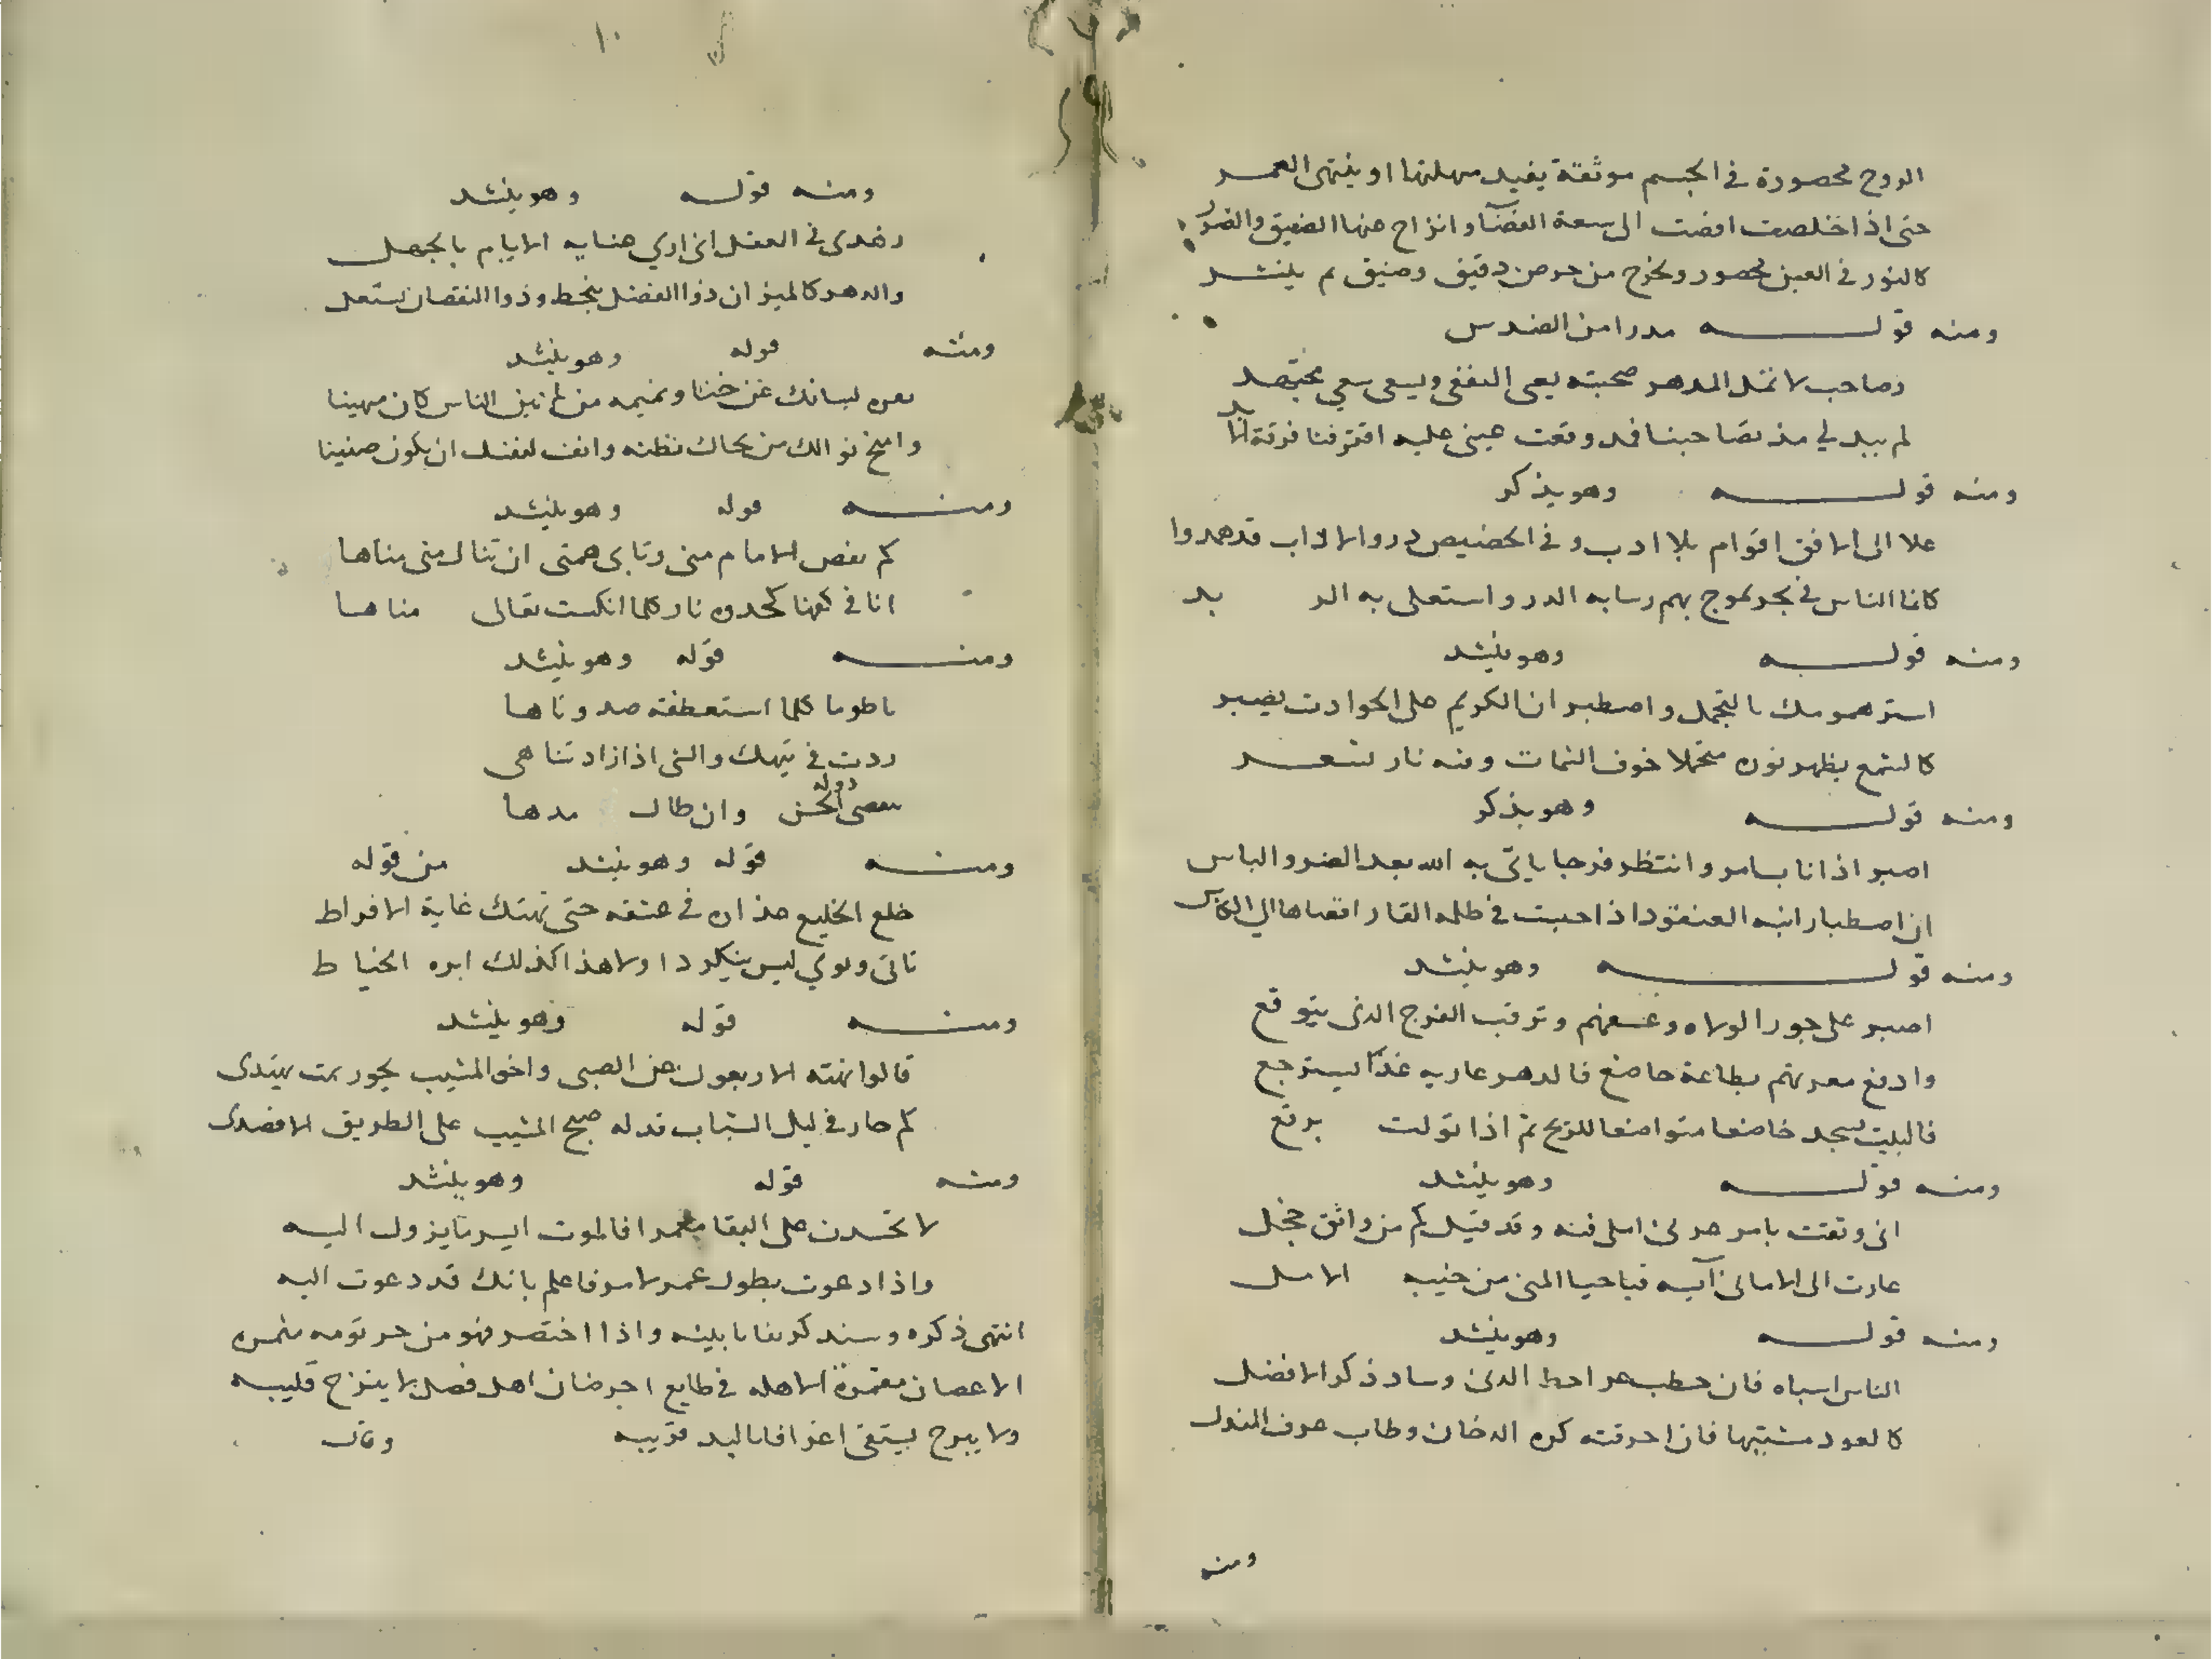 الروح محصورة في الجسم موثقة يفيد مهلتها او ينتهى العمر
حتى اذا خلصت افضت الى سعة الفضآ وانزاح عنها الضيق والضرر
كالنور في العين محصور ويخرج من دقيق وضيق ينشد
ومنه قوله
وصاحب لا تمل الدهر صحبته يعى النفعى ويسعى سعي مجتهد
لم يبد لي مذ تصاحبنا فمذ وقعت عينى عليه افترقنا فرقة الابد
ومنه قوله وهو يذكر
علا الى الافق اقوام بلا ادب وفي الحضيض ذووا الاداب قد همدوا
كانما الناس في بحر يموج بهم رسابه الدر واستعلى به الزبد
ومنه قوله وهو ينشد
استر همومك بالتجمل واصطبر ان الكريم على الحوادث يصبر
كالشمع يظهر نوره متجملا خوف الشمات وفيه نار تسعر
ومنه قوله وهو يذكر
اصبر اذا نابك امر وانتظر فرجا ياتى به الله بعد الضر والباس
ان اصطبار ابنة العنقود اذا حبست في ظلمه القار اقضاها الى الكاس
ومنه قوله وهو ينشد
اصبر على جور الولاه وعسفهم وترقب الفرج الذى يتوقع
وادفع معرتهم بطاعة خاضع فالدهر عاريه غدًا يسترجع
فالنبت يسجد خاضعا متواضعا للريح ثم اذا تولت يرفع
ومنه قوله وهو ينشد
انى وثقت بامر غرنى املى فيه وقد قيل كم من واثق خجل
عادت الى الامانى آيسه فياحيا المنى من خيبه الامل
ومنه قوله وهو ينشد
الناس اشباه فان خطب عرا حط الدنى وساد ذكر الافضل
كالعود مشتبها فان احرقته كره الدخان وطاب عرف المندل
ومنه
١٠
ومنه قوله وهو ينشد
زهدى في العقل انى ارى عنايه الايام بالجهل
والدهر كالميزان ذوا الفضل ينحط وذوا النقصان يستعل
ومنه قوله وهو ينشد
لسانك عن خنا ونميمه من لم يزين الناس كان مهينا
وامنح نوالك من نحاك بظنه وانف لفضلك ان يكون ضنينا
ومنه قوله وهو ينشد
كم بغض الامام منى وتابى همتى ان تنال منى مناها
انا في كجذوه نار كلما انكست تعالى سناها
ومنه قوله وهو ينشد
ياظلوما كلما استعطفته صد وتاها
زدت في تيهك والشى اذا زاد تناهى
دوله الحسن وان طال مدها
ومنه قوله وهو ينشد من قوله
خلع الخليع عذاره في عشقه حتى تهتك غاية الافراط
ياتى ويوتى ليس ينكر ذا ولا هذا كذلك ابره الخياط
ومنه قوله وهو ينشد
قالوا نهته الاربعون عن الصبى واخو المشيب يجور ثمت يهتدى
كم حار في ليل الشباب فدله صبح المشيب على الطريق الاقصدى
ومنه قوله وهو ينشد
لا تحسدن على البقا معمرا فالموت ايسر ما يزول اليه
واذا دعوت بطول عمر لامر فاعلم بانك قد دعوت اليه
انتهى ذكره وسنذكر واذا اختصر فهو من جرثومه مثمره
الاغصان مغمرة الاهله في فضل لا ينزح قليبه
ولا يبرح وقال